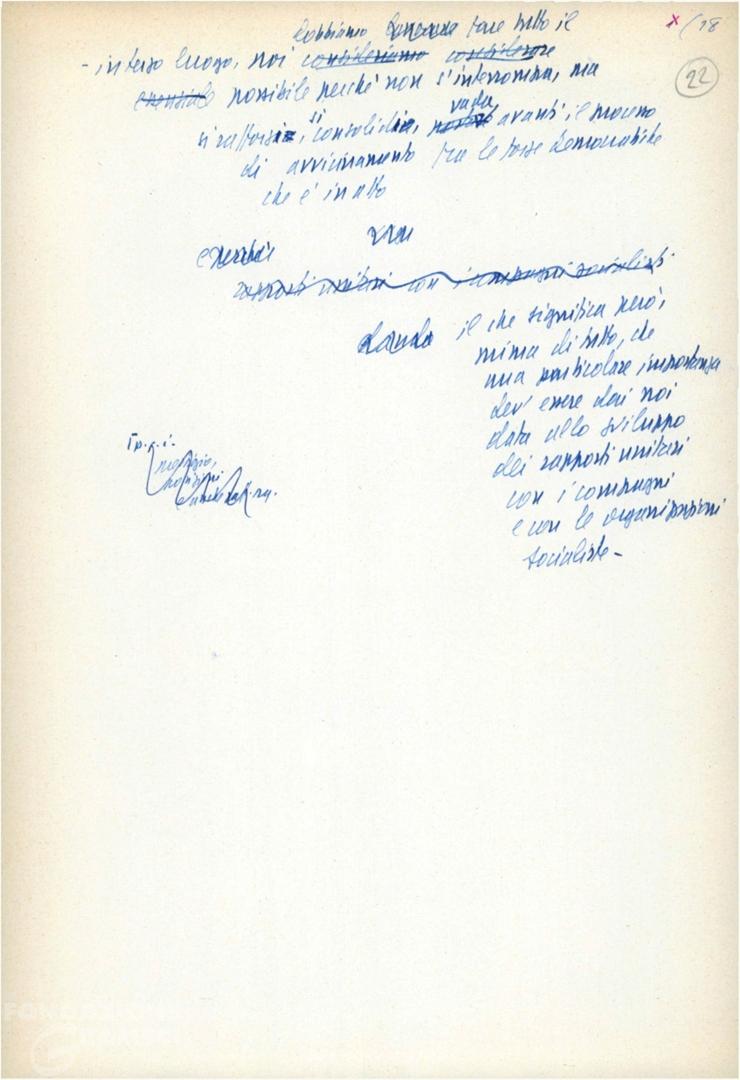 x/18
22
dobbiamo fare tutto il
- in terzo luogo, noi consideriamo considerare
essenziale possibile perché non s'interrompa, ma
si rafforzi, si consolidi, vada avanti il processo
di avvicinamento tra le forze democratiche
che è in atto
rapporti unitari con i compagni socialisti
il che significa però,
prima di tutto, che
una particolare importanza
dev'essere da noi
data allo sviluppo
dei rapporti unitari
con i compagni
e con le organizzazioni
socialiste -
I p.c.i.
FONDAZIONE
GRAMSCI